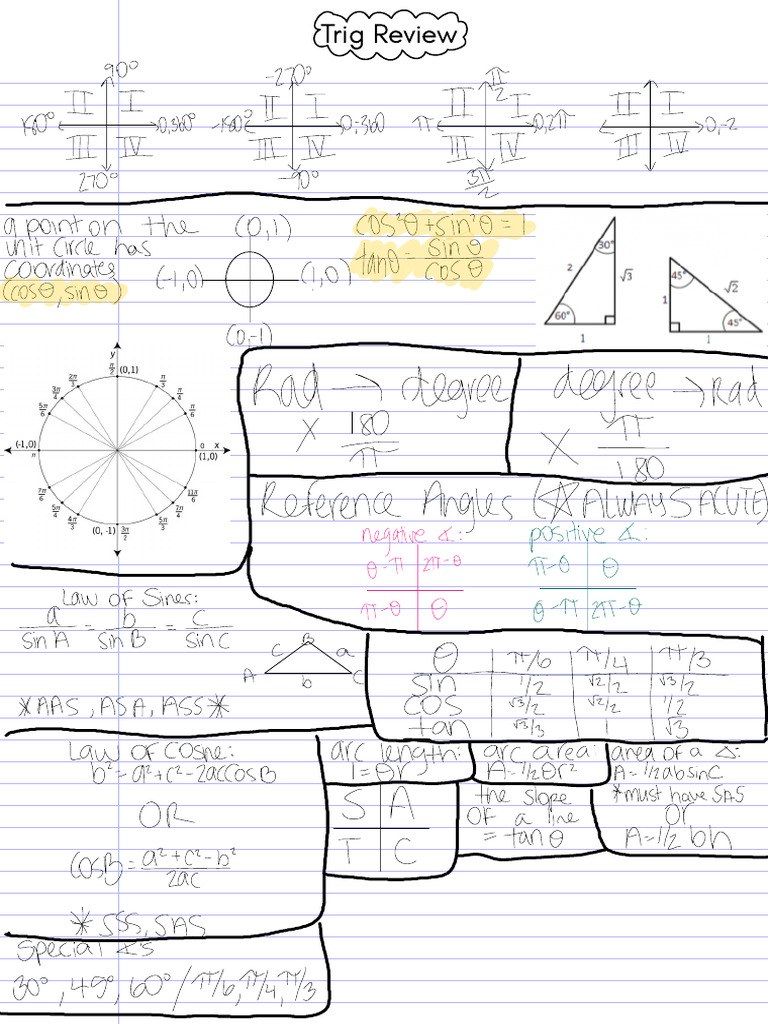 Trig Review
90°
II I
180° 0,360°
III IV
270°
-270°
II I
-180° 0,-360
III IV
-90°
π/2
II I
π 0,2π
III IV
3π/2
II I
0,-2
III IV
a point on the
unit circle has
coordinates
(cosθ, sinθ)
(0,1)
(-1,0) (1,0)
(0,-1)
cos²θ+sin²θ=1
tanθ = sinθ/cosθ
30°
2 √3
60°
1
45° √2
1
45°
1
y
π/2 (0,1)
2π/3 π/3
3π/4 π/4
5π/6 π/6
(-1,0) 0 x
π (1,0)
7π/6 11π/6
5π/4 7π/4
4π/3 5π/3
(0, -1) 3π/2
Rad → degree
× 180/π
degree → Rad
× π/180
Reference Angles (☆ALWAYS ACUTE)
negative ∡:
θ-π 2π-θ
π-θ θ
positive ∡:
π-θ θ
θ-π 2π-θ
Law of Sines:
a/sinA = b/sinB = c/sinC
B
c a
A C
b
*AAS, ASA, ASS*
θ π/6 π/4 π/3
sin 1/2 √2/2 √3/2
cos √3/2 √2/2 1/2
tan √3/3 1 √3
Law of Cosne:
b²=a²+c²-2accosB
OR
cosB = a²+c²-b²/2ac
* SSS, SAS
arc length:
l=θr
arc area:
A=1/2θr²
area of a Δ:
A=1/2absinC
*must have SAS
or
A=1/2 bh
S A
T C
the slope
OF a line
= tanθ
Special ∡s
30°, 45°, 60° / π/6, π/4, π/3